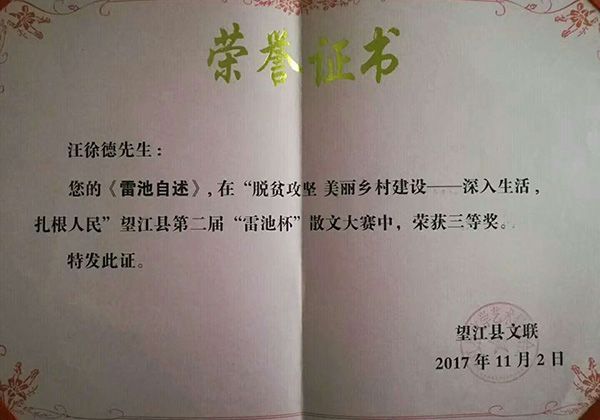 荣誉证书
汪徐德先生：
您的《雷池自述》，在“脱贫攻坚 美丽乡村建设——深入生活，
扎根人民”望江县第二届“雷池杯”散文大赛中，荣获三等奖。
特发此证。
望江县文联
2017年11月2日